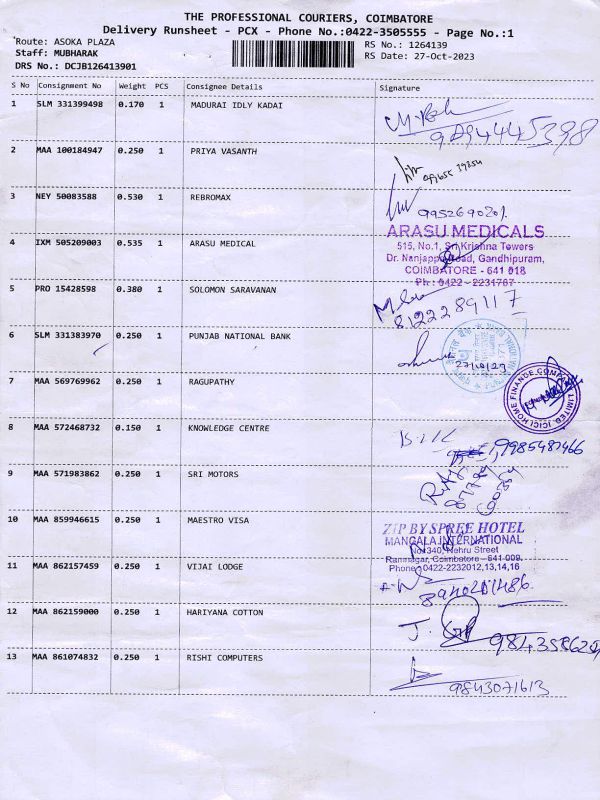 THE PROFESSIONAL COURIERS, COIMBATORE
Delivery Runsheet - PCX - Phone No.:0422-3505555 - Page No.:1
Route: ASOKA PLAZA
Staff: MUBHARAK
DRS No.: DCJB126413901
RS No.: 1264139
RS Date: 27-Oct-2023
S No Consignment No Weight PCS Consignee Details Signature
1 SLM 331399498 0.170 1 MADURAI IDLY KADAI
9894445398
2 MAA 100184947 0.250 1 PRIYA VASANTH
3 NEY 50083588 0.530 1 REBROMAX
4 IXM 505209003 0.535 1 ARASU MEDICAL
ARASU MEDICALS
515, No.1, Sri Krishna Towers
Dr. Nanjappa Road, Gandhipuram,
COIMBATORE - 641 018
Ph : 0422 - 2231767
5 PRO 15428598 0.380 1 SOLOMON SARAVANAN
8122289117
6 SLM 331383970 0.250 1 PUNJAB NATIONAL BANK
27/10/23
7 MAA 569769962 0.250 1 RAGUPATHY
ICICI HOME FINANCE COMPANY LIMITED
8 MAA 572468732 0.150 1 KNOWLEDGE CENTRE
9985487466
9 MAA 571983862 0.250 1 SRI MOTORS
10 MAA 859946615 0.250 1 MAESTRO VISA
ZIP BY SPREE HOTEL
MANGALA INTERNATIONAL
No:340, Nehru Street
Ramnagar, Coimbatore - 641 009.
Phone : 0422-2232012,13,14,16
11 MAA 862157459 0.250 1 VIJAI LODGE
8940201486
12 MAA 862159000 0.250 1 HARIYANA COTTON
13 MAA 861074832 0.250 1 RISHI COMPUTERS
9843071613